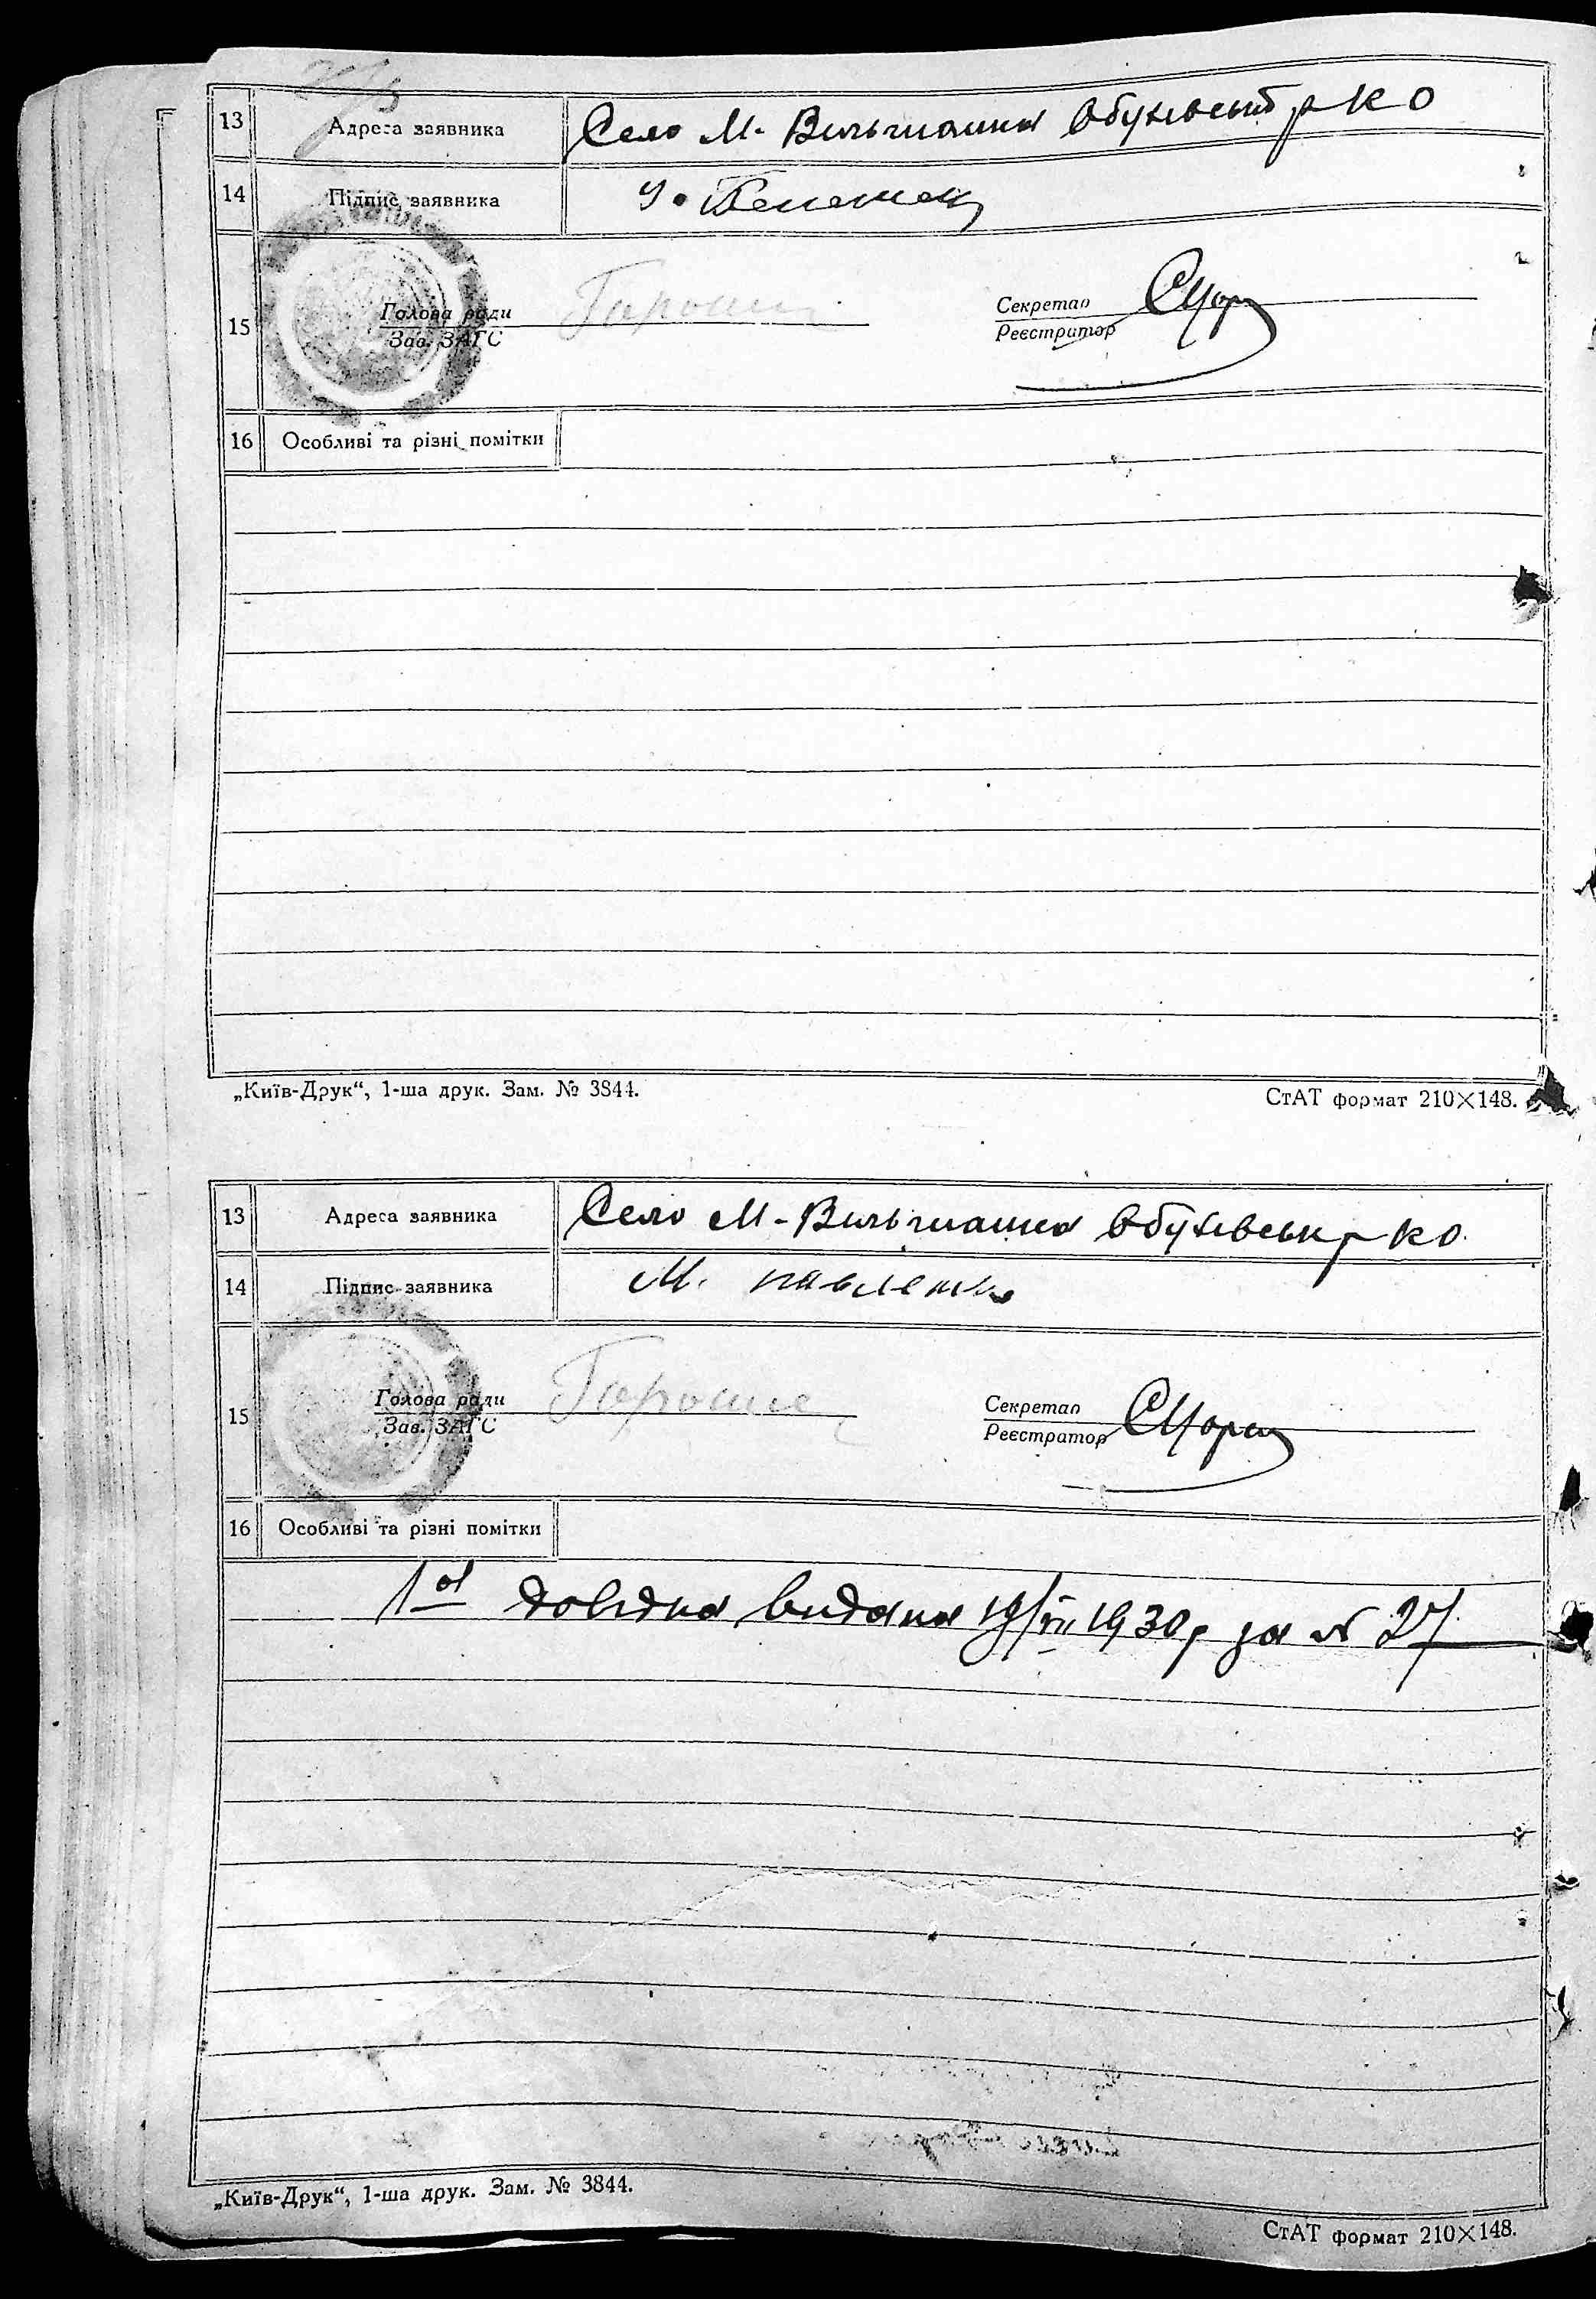 13 Адреса заявника Село М. Вильшанка Обухівськ р К О
14 Підпис заявника
15 Голова ради
Зав. ЗАГС
Секретар
Реєстратор
16 Особливі та різні помітки
„Київ-Друк“, 1-ша друк. Зам. № 3844. СтАТ формат 210×148.
13 Адреса заявника Село М-Вильшанка Обухівськ р К О.
14 Підпис заявника М. павленко
15 Голова ради
Зав. ЗАГС
Секретар
Реєстратор
16 Особливі та різні помітки
1а довідка видана 19/VII 1930р за № 27
„Київ-Друк“, 1-ша друк. Зам. № 3844.
СтАТ формат 210×148.